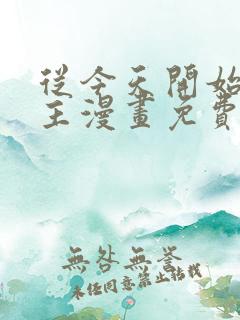 從今天開始
王漫畫免費
無咎無譽
未經同意禁止轉載